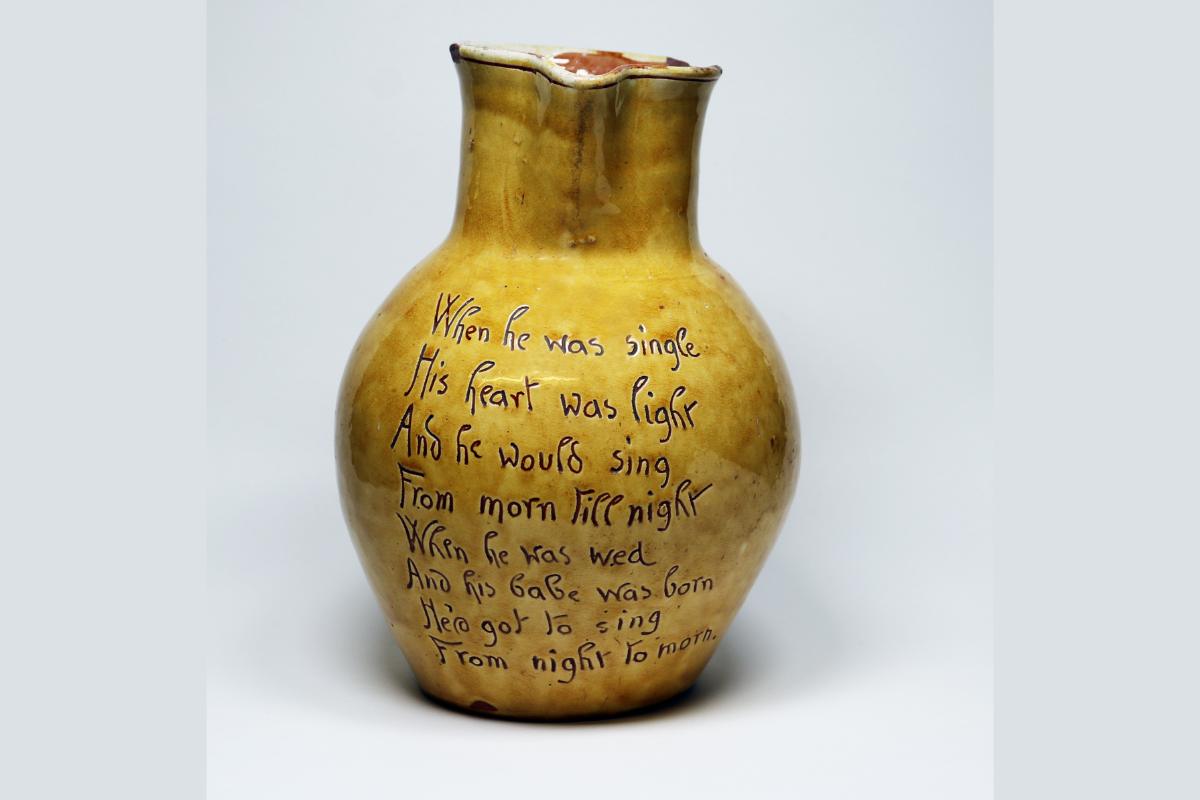 When he was single
His heart was light
And he would sing
From morn till night
When he was wed
And his babe was born
He'd got to sing
From night to morn.